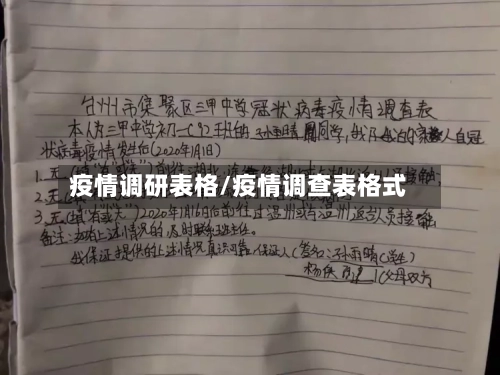 台州市集聚区三甲中学冠状病毒疫情调查表
本人为三甲中学初一(9)班的孙雨晴同学,我及我的家人自冠
状病毒疫情发生后(2020年1月1日)
1.无
疫情调研表格/疫情调查表格式
3.无(填"有或无")2020年1月16日后前往过温州或与温州返台人员接触
备注:如有上述情况的及时联系班主任。
我保证提供的上述情况真实可靠,保证人(签名:孙雨晴(学生)
(父母双方)